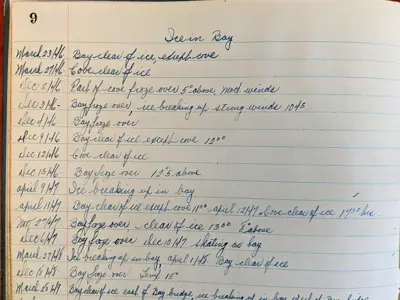 9
Ice in Bay
March 23/46 Bay clear of ice except cove
March 27/46 Cove clear of ice
Dec 2/46 Part of cove froze over 5° above, mod winds
Dec 3/46 - Bay froze over, ice breaking up strong winds
Dec 8/46 Bay froze over
Dec 9/46 Bay clear of ice except cove 1200
Dec 12/46 Cove clear of ice
Dec 15/46 Bay froze over 12° above
april 9/47 Ice breaking up in bay
april 11/47 Bay clear of ice except cove 1100 - april 12/47 Cove clear of ice 1700 hrs.
Nov 27/47 Bay froze over - clear of ice 1300 8° above
Dec 6/47 Bay froze over Dec 10/47 skating on bay
March 29/48 Ice breaking up in bay april 1/48 Bay clear of ice
Dec 15/48 Bay froze over Temp 15°
March 25/49 Bay clear of ice east of Bay bridge, ice breaking up in bay west of